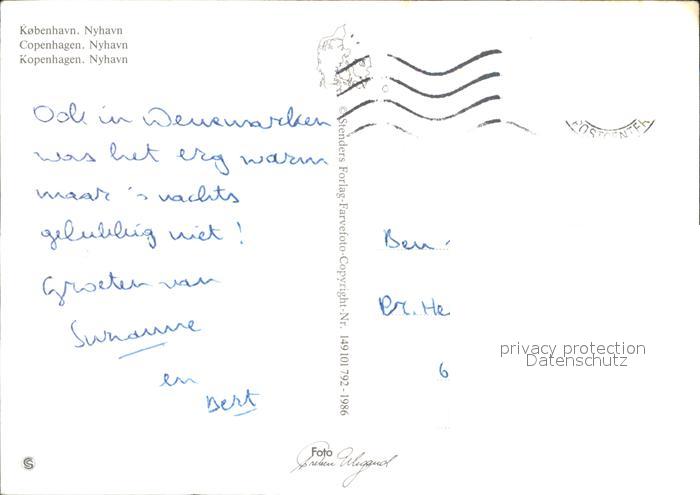 København. Nyhavn
Copenhagen. Nyhavn
Kopenhagen. Nyhavn
Ook in Denemarken
was het erg warm
maar 's nachts
gelukkig niet!
Groeten van
Suzanne
en
Bert
© Stenders Forlag-Farvefoto-Copyright-Nr. 149101 792-1986
POSTCENTER
Ben
Dr. He
6
privacy protection
Datenschutz
Foto
Preben Wigand
S